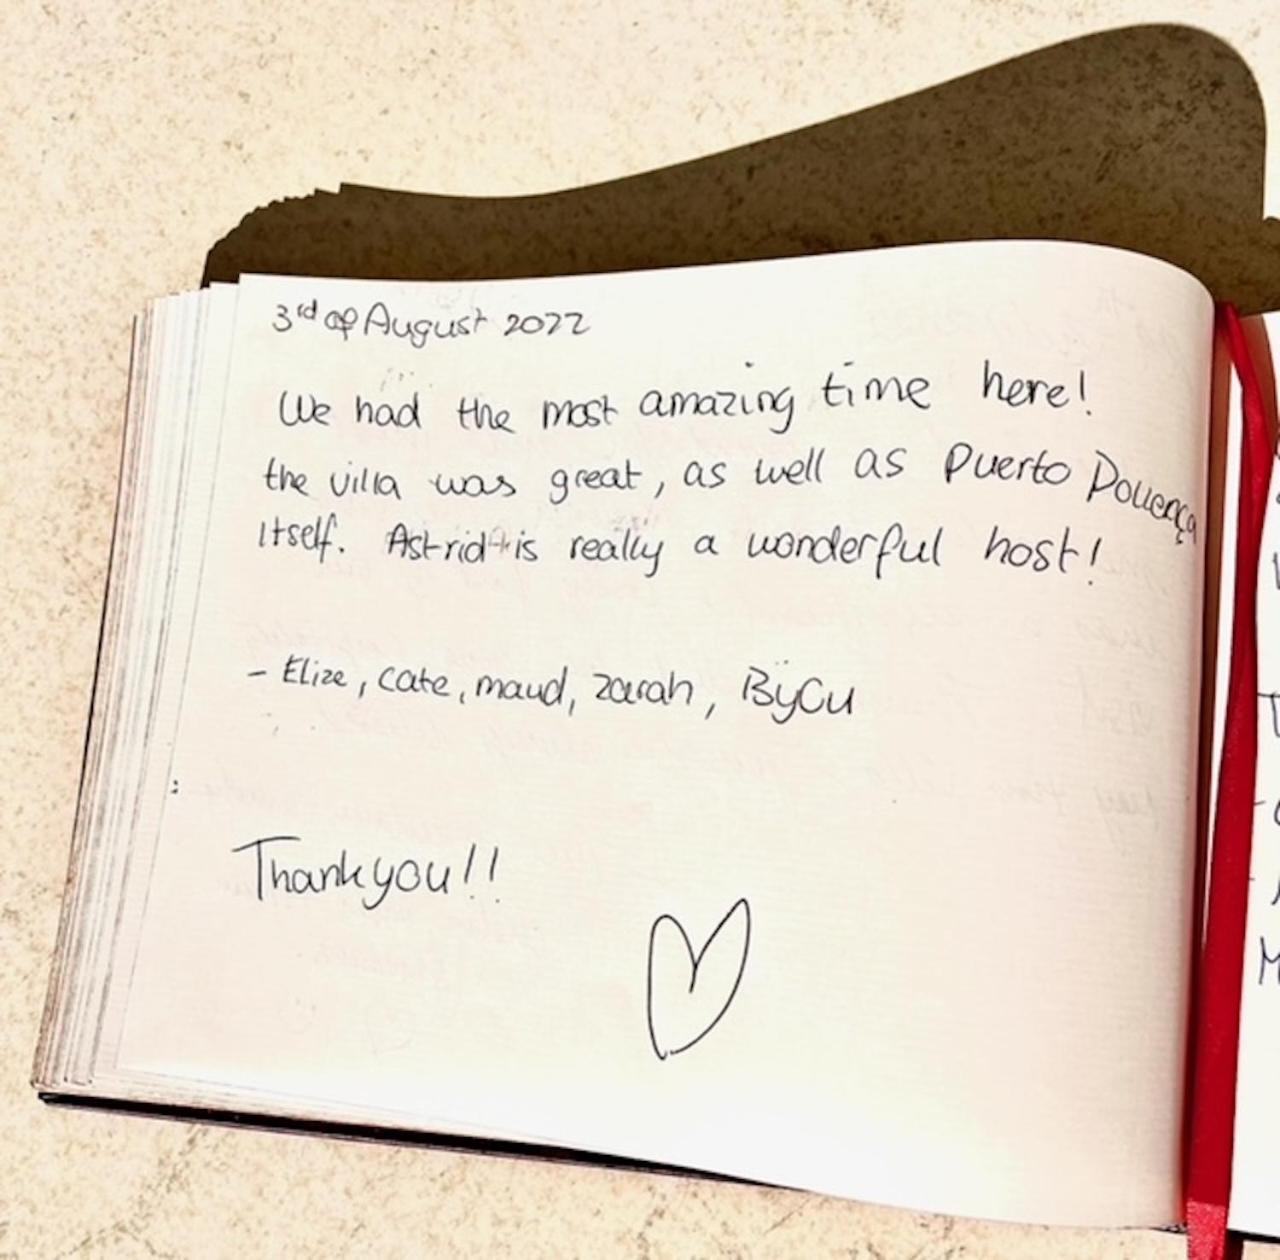 3rd of August 2022
We had the most amazing time here!
the villa was great, as well as Puerto Pollença
itself. Astrid is really a wonderful host!
- Elize, cate, maud, zarah,
Thankyou!!